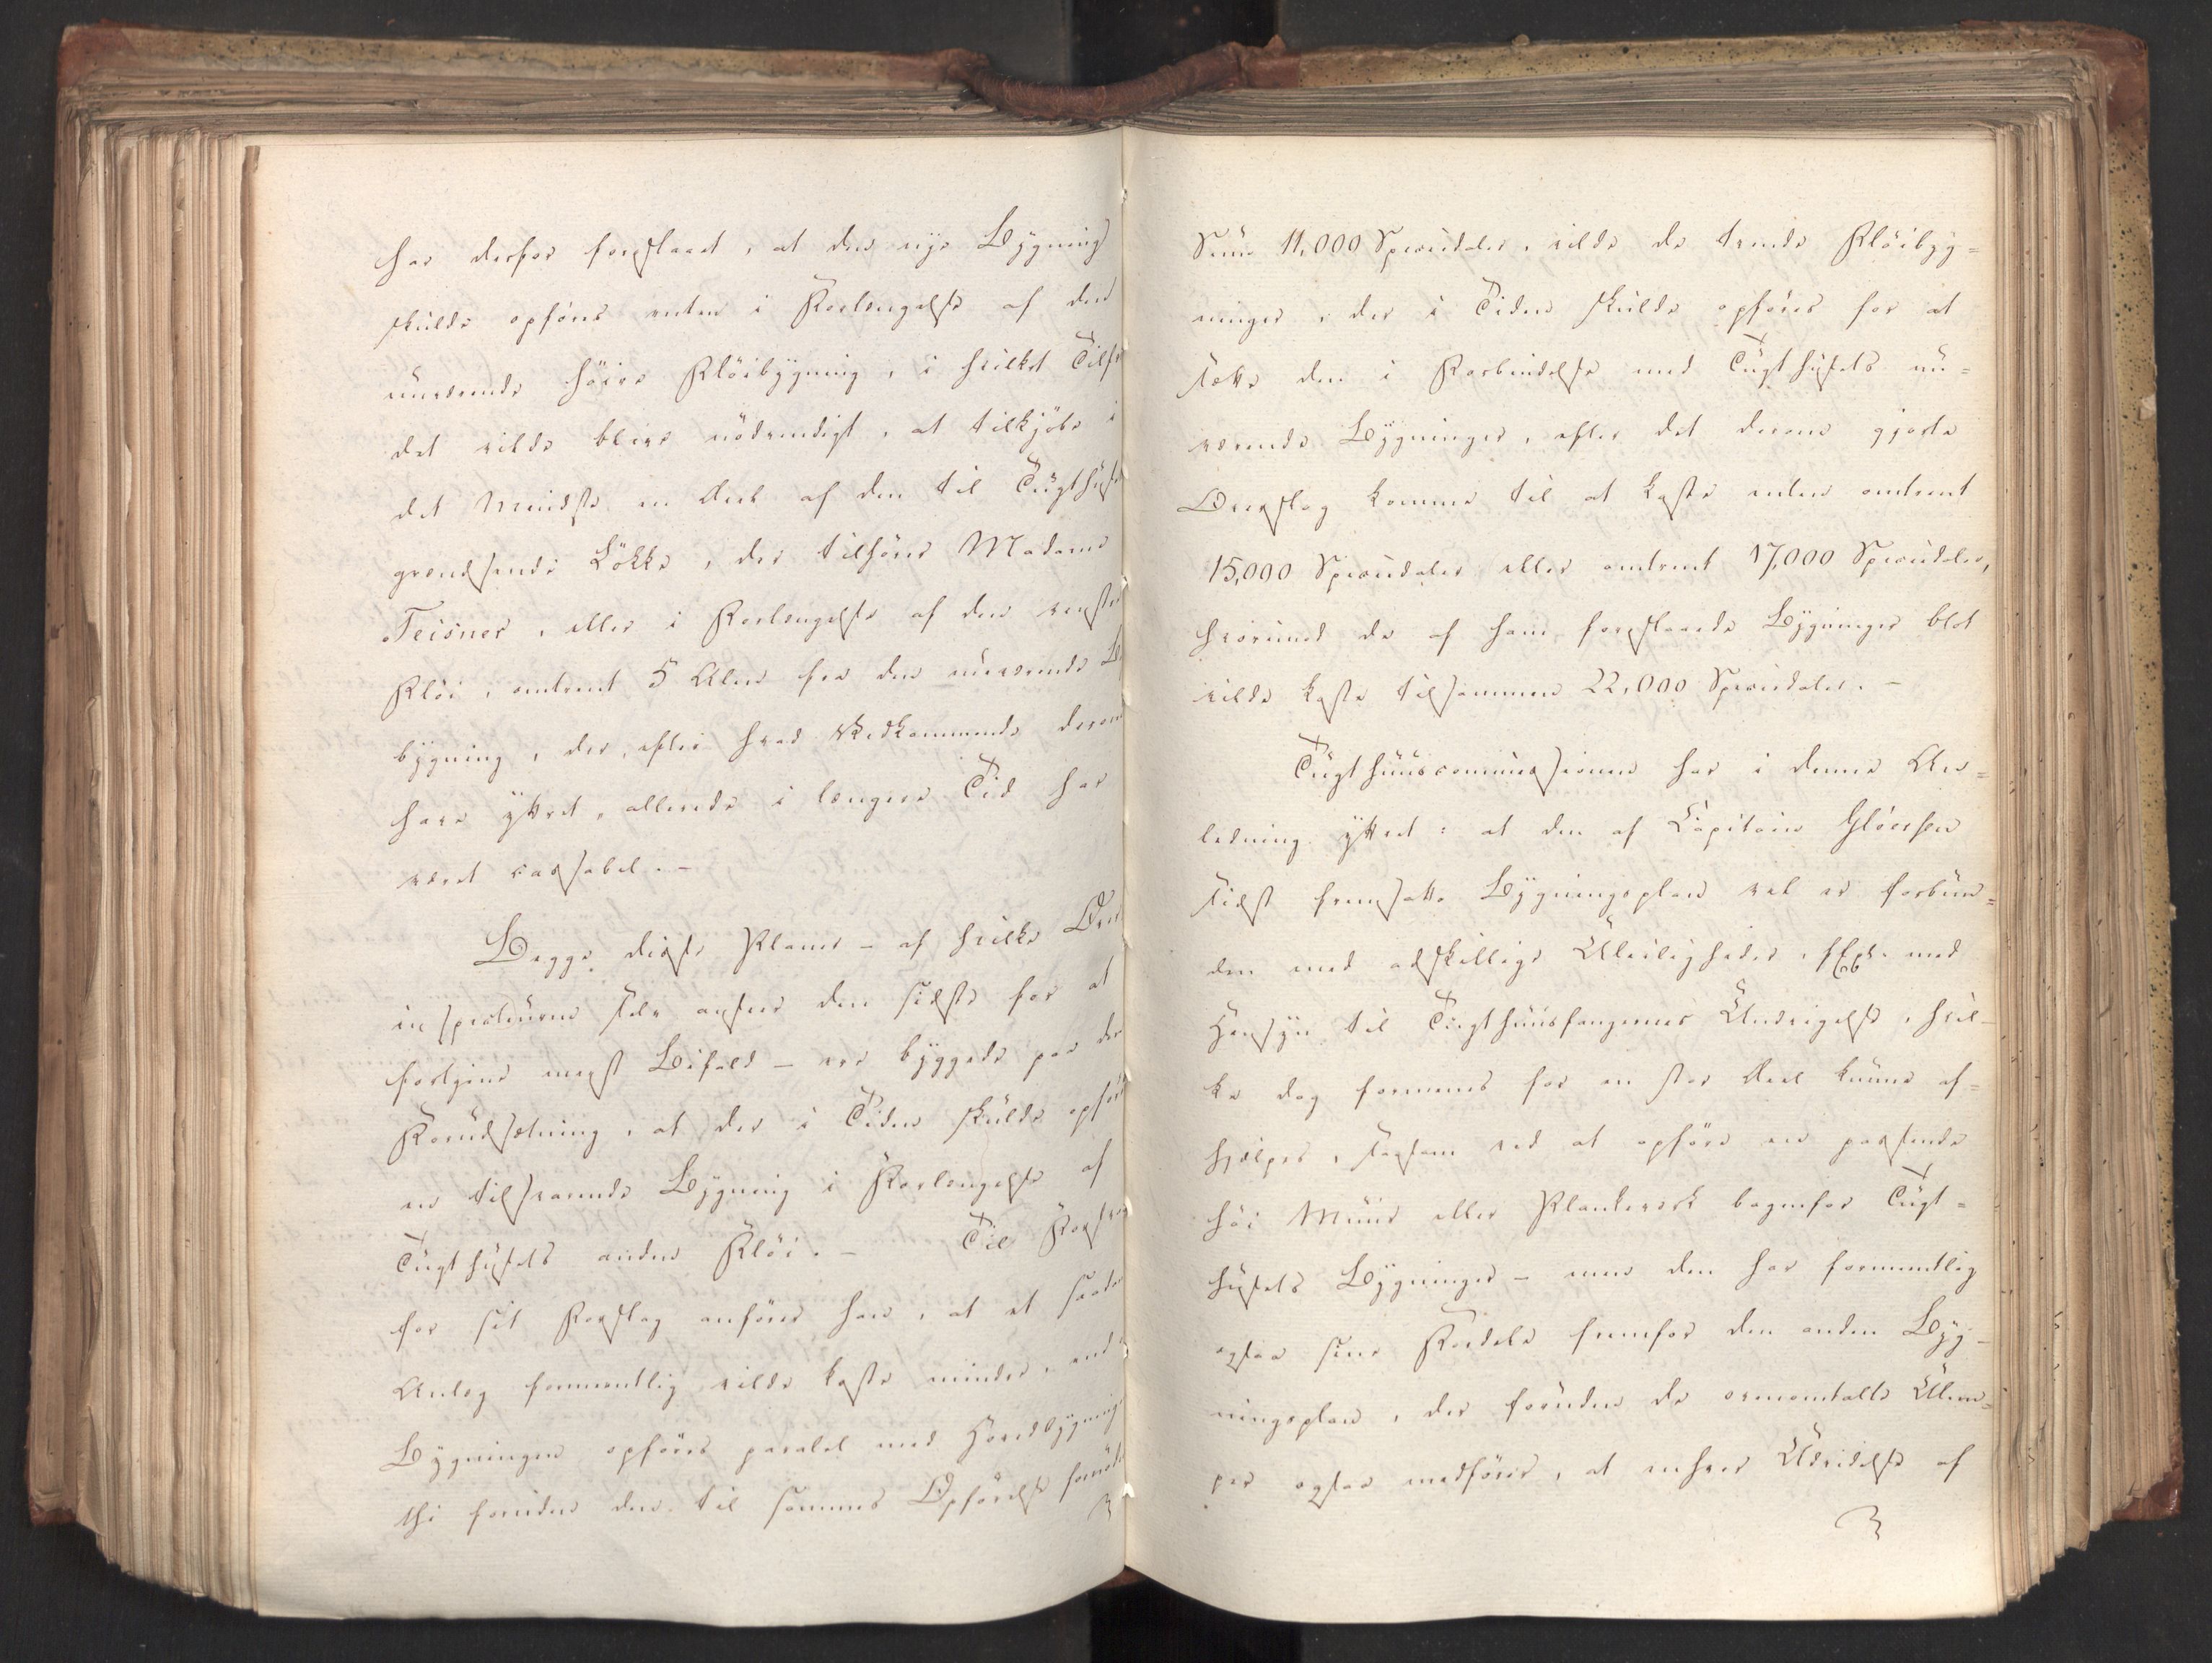 har derfor foreslaaet, at den nye Bygning
skulde opføres enten i Forlængelse af den
nuværende høire Fløibygning, i hvilket Tilfæ
det vilde blive nødvendigt, at tilkjøbe i
det mindste en Deel af den til Tugthuset
grændsende Løkke, der tilhører Madame
Teisner, eller i Forlængelse af den venstre
Fløi, omtrent 5 Alen fra den nuværende
bygning, der, efter hvad Vedkommende derom
have yttret, allerede i længere Tid har
været cassabel. -
Begge disse Planer - af hvilke
inspecteuren selv anseer den sidste for at
fortjene meest Bifald - ere byggede paa den
Forudsætning, at der i Tiden skulde opføres
en tilsvarende Bygning i Forlængelse af
Tugthusets anden Fløi. - Til Forsvar
for sit Forslag anfører han, at et saadan
Anlæg formeentlig vilde koste mindre, end
Bygningen opføres paralel med Hovedbygning
thi foruden den til sammes Opførelse fornødne
Sum 11,000 Speciedaler, vilde de tvende Fløibyg=
ninger, der i Tiden skulde opføres for at
sætte den i Forbindelse med Tugthusets nu=
værende Bygninger, efter det derover gjorte
Overslag komme til at koste enten omtrent
15,000 Speciedaler eller omtrent 17,000 Speciedaler,
hvorimod de af ham foreslaaede Bygninger blot
vilde koste tilsammen 22,000 Speciedaler. -
Tugthuuscommissionen har i denne An=
ledning yttret: at den af Capitain Gløersen
sidst fremsatte Bygningsplan vel er forbun=
den med adskillige Uleiligheder, f Ex. med
Hensyn til Tugthuusfangernes Undvigelse, hvil-
ke dog formenes for en stor Deel kunne af=
hjælpes, saasom ved at opføre en passende
høi Muur eller Plankeværk bagenfor Tugt=
husets Bygninger - men den har formeentlig
ogsaa sine Fordele fremfor den anden Byg-
ningsplan, der foruden de ovenomtalte Ulem=
per ogsaa medfører, at enhver Udvidelse af